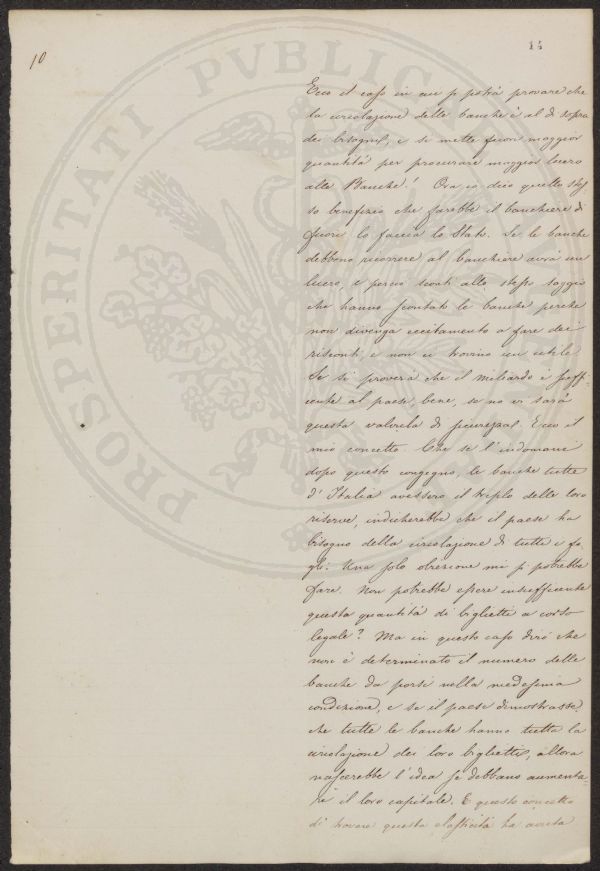 10
14
PROSPERITATI PVBLIC
Ecco il caso in cui si potrà provare che
la circolazione delle banche è al di sopra
dei bisogni, e si mette fuori maggior
quantità per procurare maggior lucro
alle Banche! Ora io dico questo stes
so benefizio che farebbe il banchiere di
fuori lo faccia lo Stato. Se le banche
debbono ricorrere al banchiere avrà un
lucro, e perciò sconti allo stesso saggio
che hanno scontato le banche perchè
non divenga eccitamento a fare dei
risconti, e non ci trovino un utile
Se si proverà che il miliardo è suffi
ciente al paese, bene, se no vi sarà
questa valvola di sicurezza. Ecco il
mio concetto. Che se l'indomani
dopo questo congegno, le banche tutte
d'Italia avessero il triplo delle loro
riserve, indicherebbe che il paese ha
bisogno della circolazione di tutti i fo
gli. Una sola obiezione mi si potrebbe
fare. Non potrebbe essere insufficiente
questa quantità di biglietti a corso
legale? Ma in questo caso dirò che
non è determinato il numero delle
banche da porsi nella medesima
condizione, e se il paese dimostrasse
che tutte le banche hanno tutta la
circolazione dei loro biglietti, allora
nascerebbe l'idea se debbano aumenta
re il loro capitale. E questo concetto
di trovare questa elasticità ha avuto